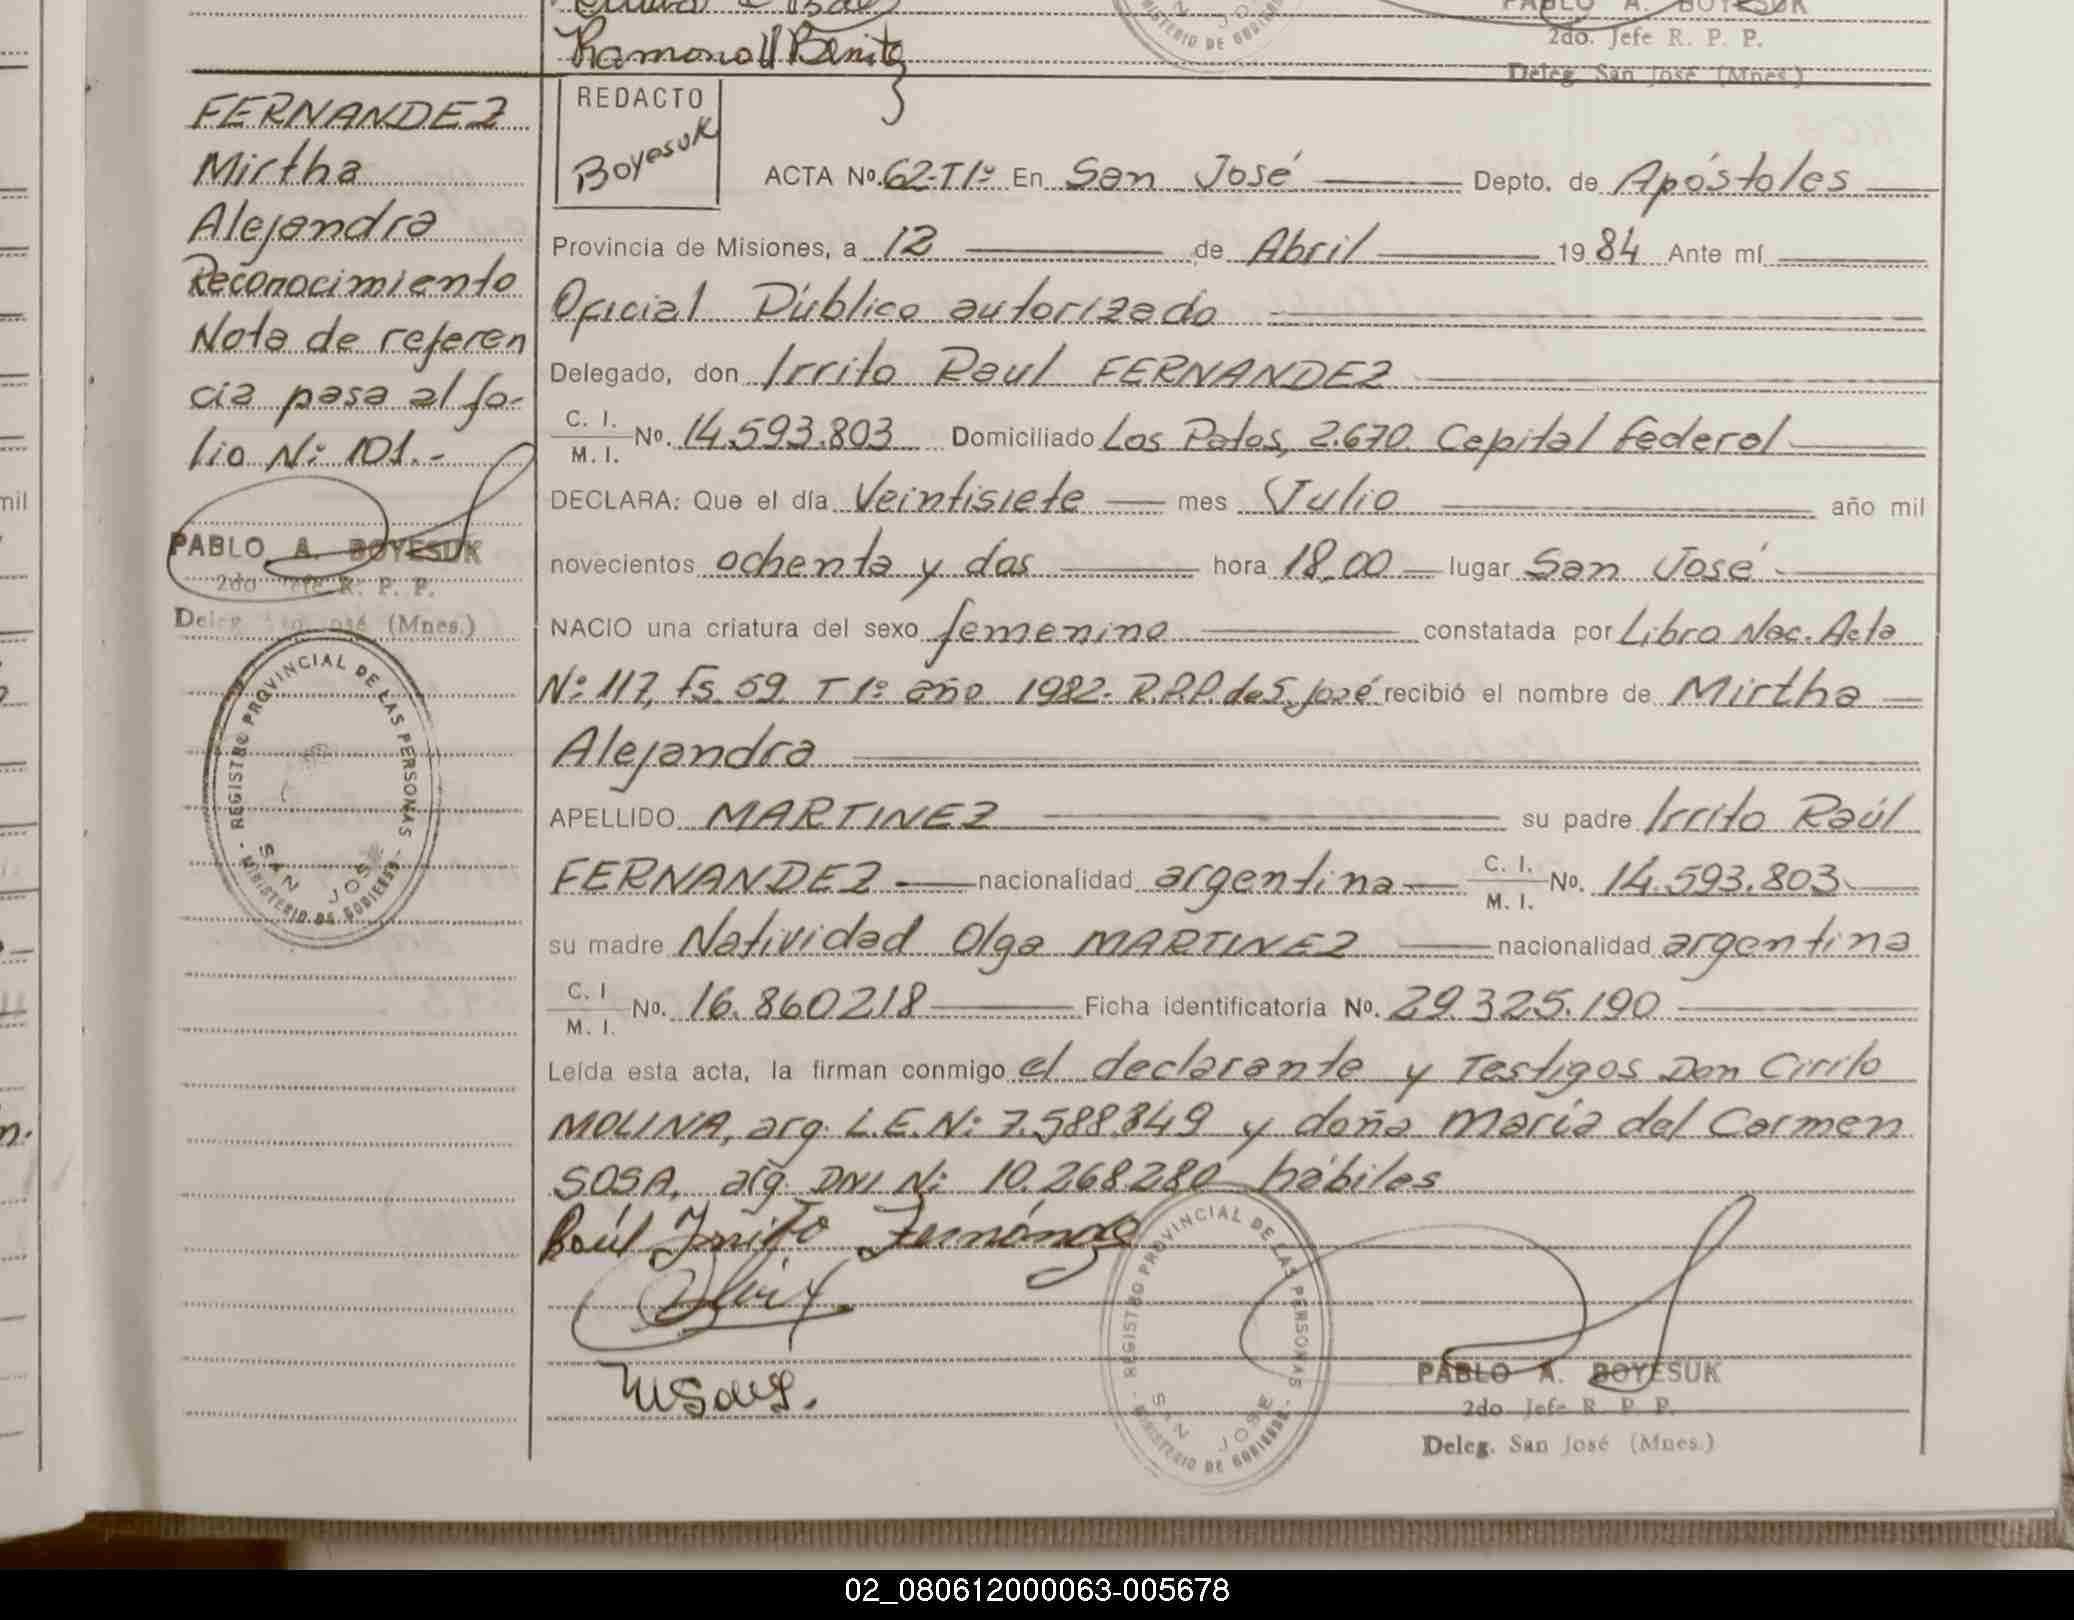 Ramona H Benitez
PABLO A. BOYESUK
2do. Jefe R. P. P.
Deleg. San José (Mnes.)
MINISTERIO DE GOBIERNO
FERNANDEZ
Mirtha
Alejandra
Reconocimiento
Nota de referen
cia pasa al fo-
lio Nº 101.-
PABLO A. BOYESUK
2do Jefe R. P. P.
Deleg. San José (Mnes.)
REGISTRO PROVINCIAL DE LAS PERSONAS
SAN JOSE
- MINISTERIO DE GOBIERNO -
mil
REDACTO
Boyesuk
ACTA Nº. 62-T1º En San José Depto. de Apóstoles
Provincia de Misiones, a 12 de Abril 1984 Ante mí
Oficial Público autorizado
Delegado, don Irrito Raul FERNANDEZ
C. I.
M. I. No. 14.593.803 Domiciliado Los Patos, 2.670. Capital Federal
DECLARA: Que el día Veintisiete mes Julio año mil
novecientos ochenta y dos hora 18,00 lugar San José
NACIO una criatura del sexo femenino constatada por Libro Nac. Acta
Nº 117, Fs. 59. T 1º año 1982. R.P.P. de S. José recibió el nombre de Mirtha
Alejandra
APELLIDO MARTINEZ su padre Irrito Raúl
FERNANDEZ nacionalidad argentina C. I.
M. I. No. 14.593.803
su madre Natividad Olga MARTINEZ nacionalidad argentina
C. I
M. I. No. 16.860218 Ficha identificatoria No. 29.325.190
Leída esta acta, la firman conmigo el declarante y Testigos Don Cirilo
MOLINA, arg. L.E.Nº 7.588.849 y doña Maria del Carmen
SOSA, arg. DNI Nº 10.268280 hábiles
Raúl Irrito Fernández
REGISTRO PROVINCIAL DE LAS PERSONAS
SAN JOSE
- MINISTERIO DE GOBIERNO -
PABLO A. BOYESUK
2do Jefe R. P. P.
Deleg. San José (Mnes.)
02_080612000063-005678